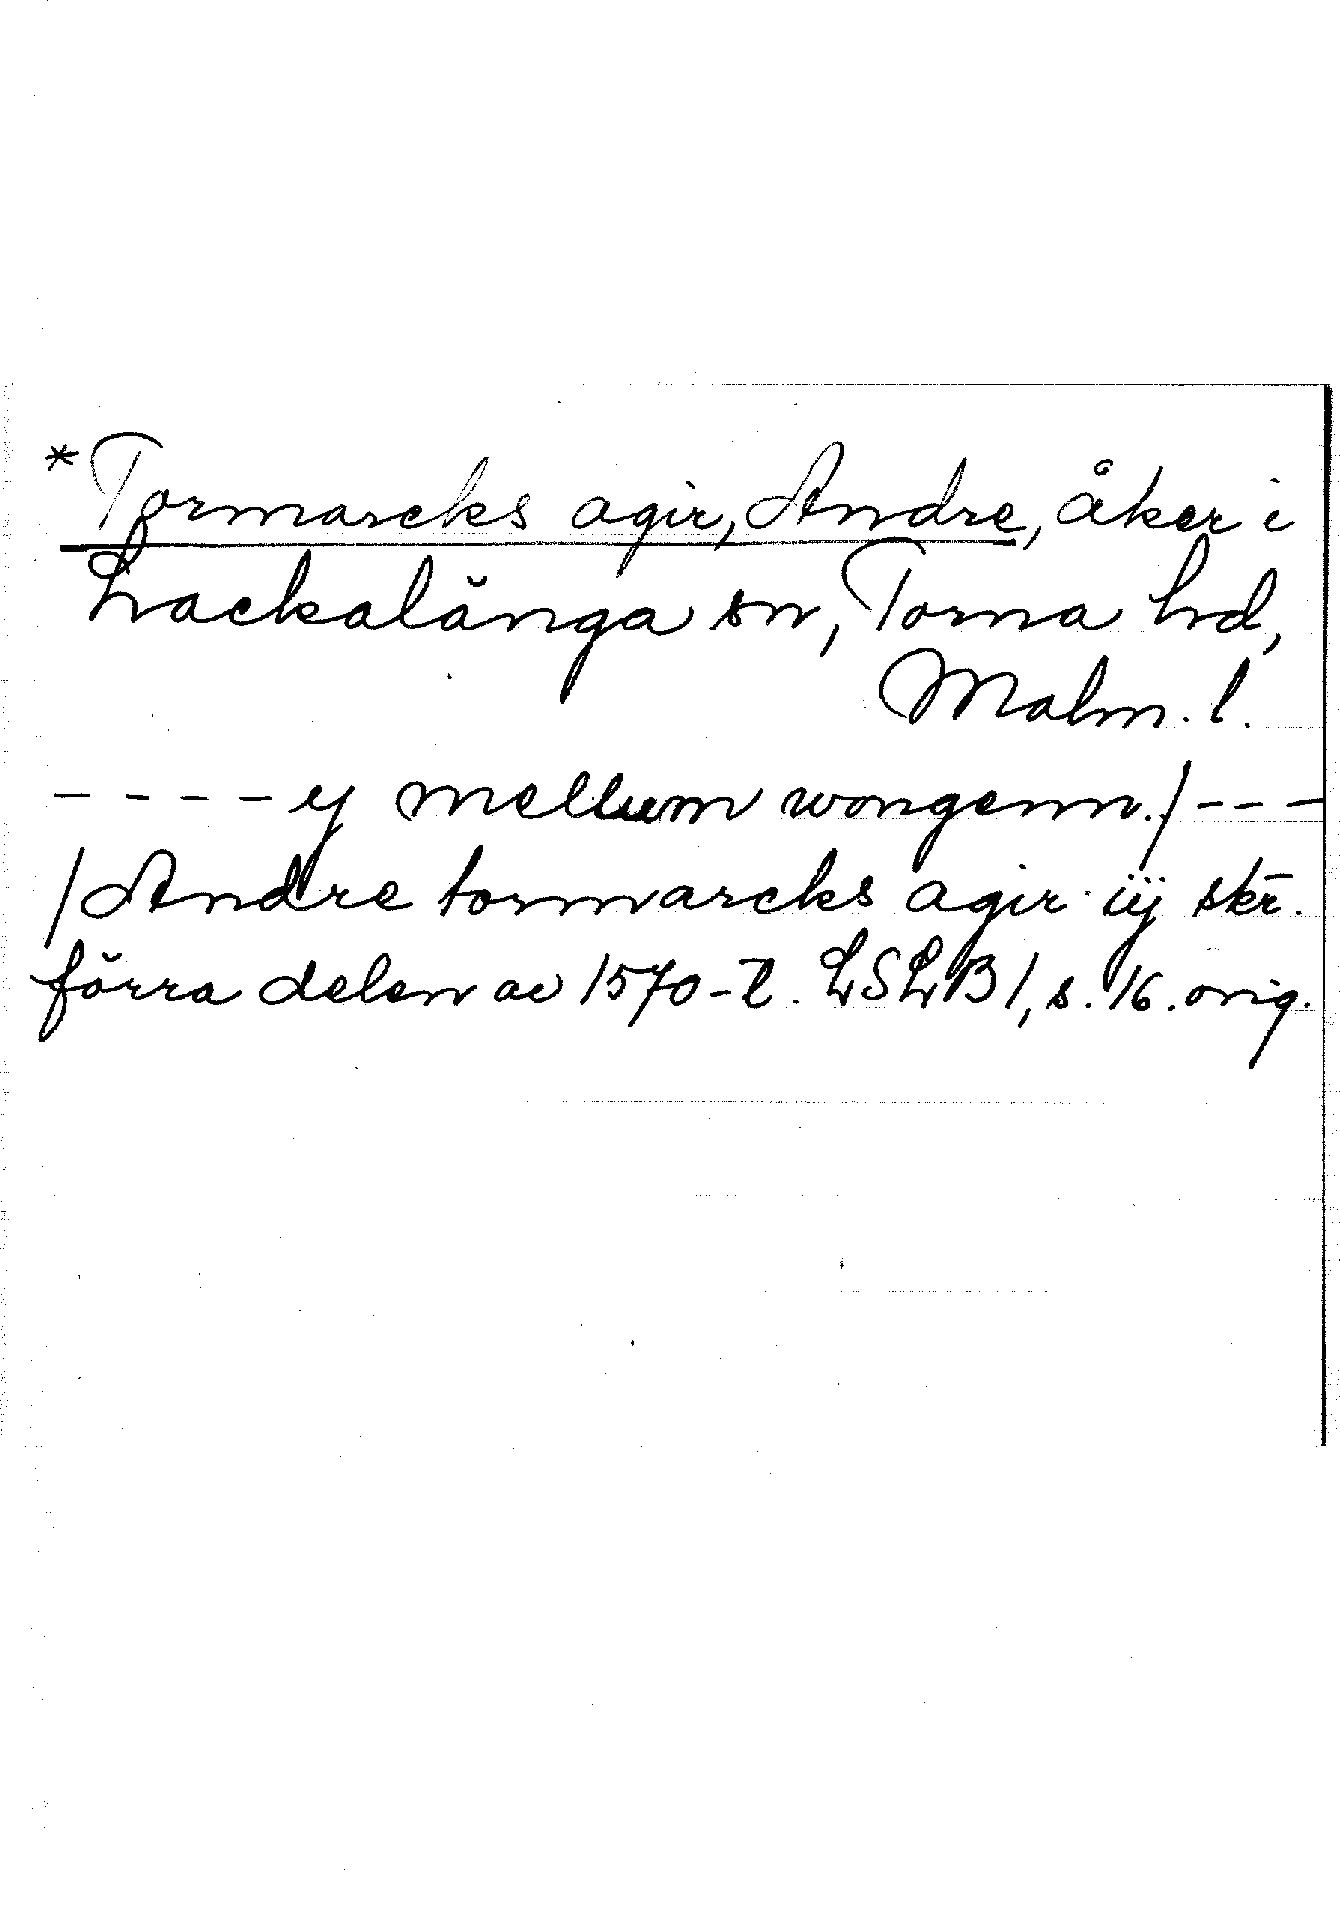 *Tormarcks agir, Andre, åker i
Lackalänga sn, Torna hd,
Malm. l.
- - - - y mellum wongenn./ - - -
/Andre tormarcks agir iij skr̄.
förra delen av 1570-t. LSLB 1, s. 16. orig.